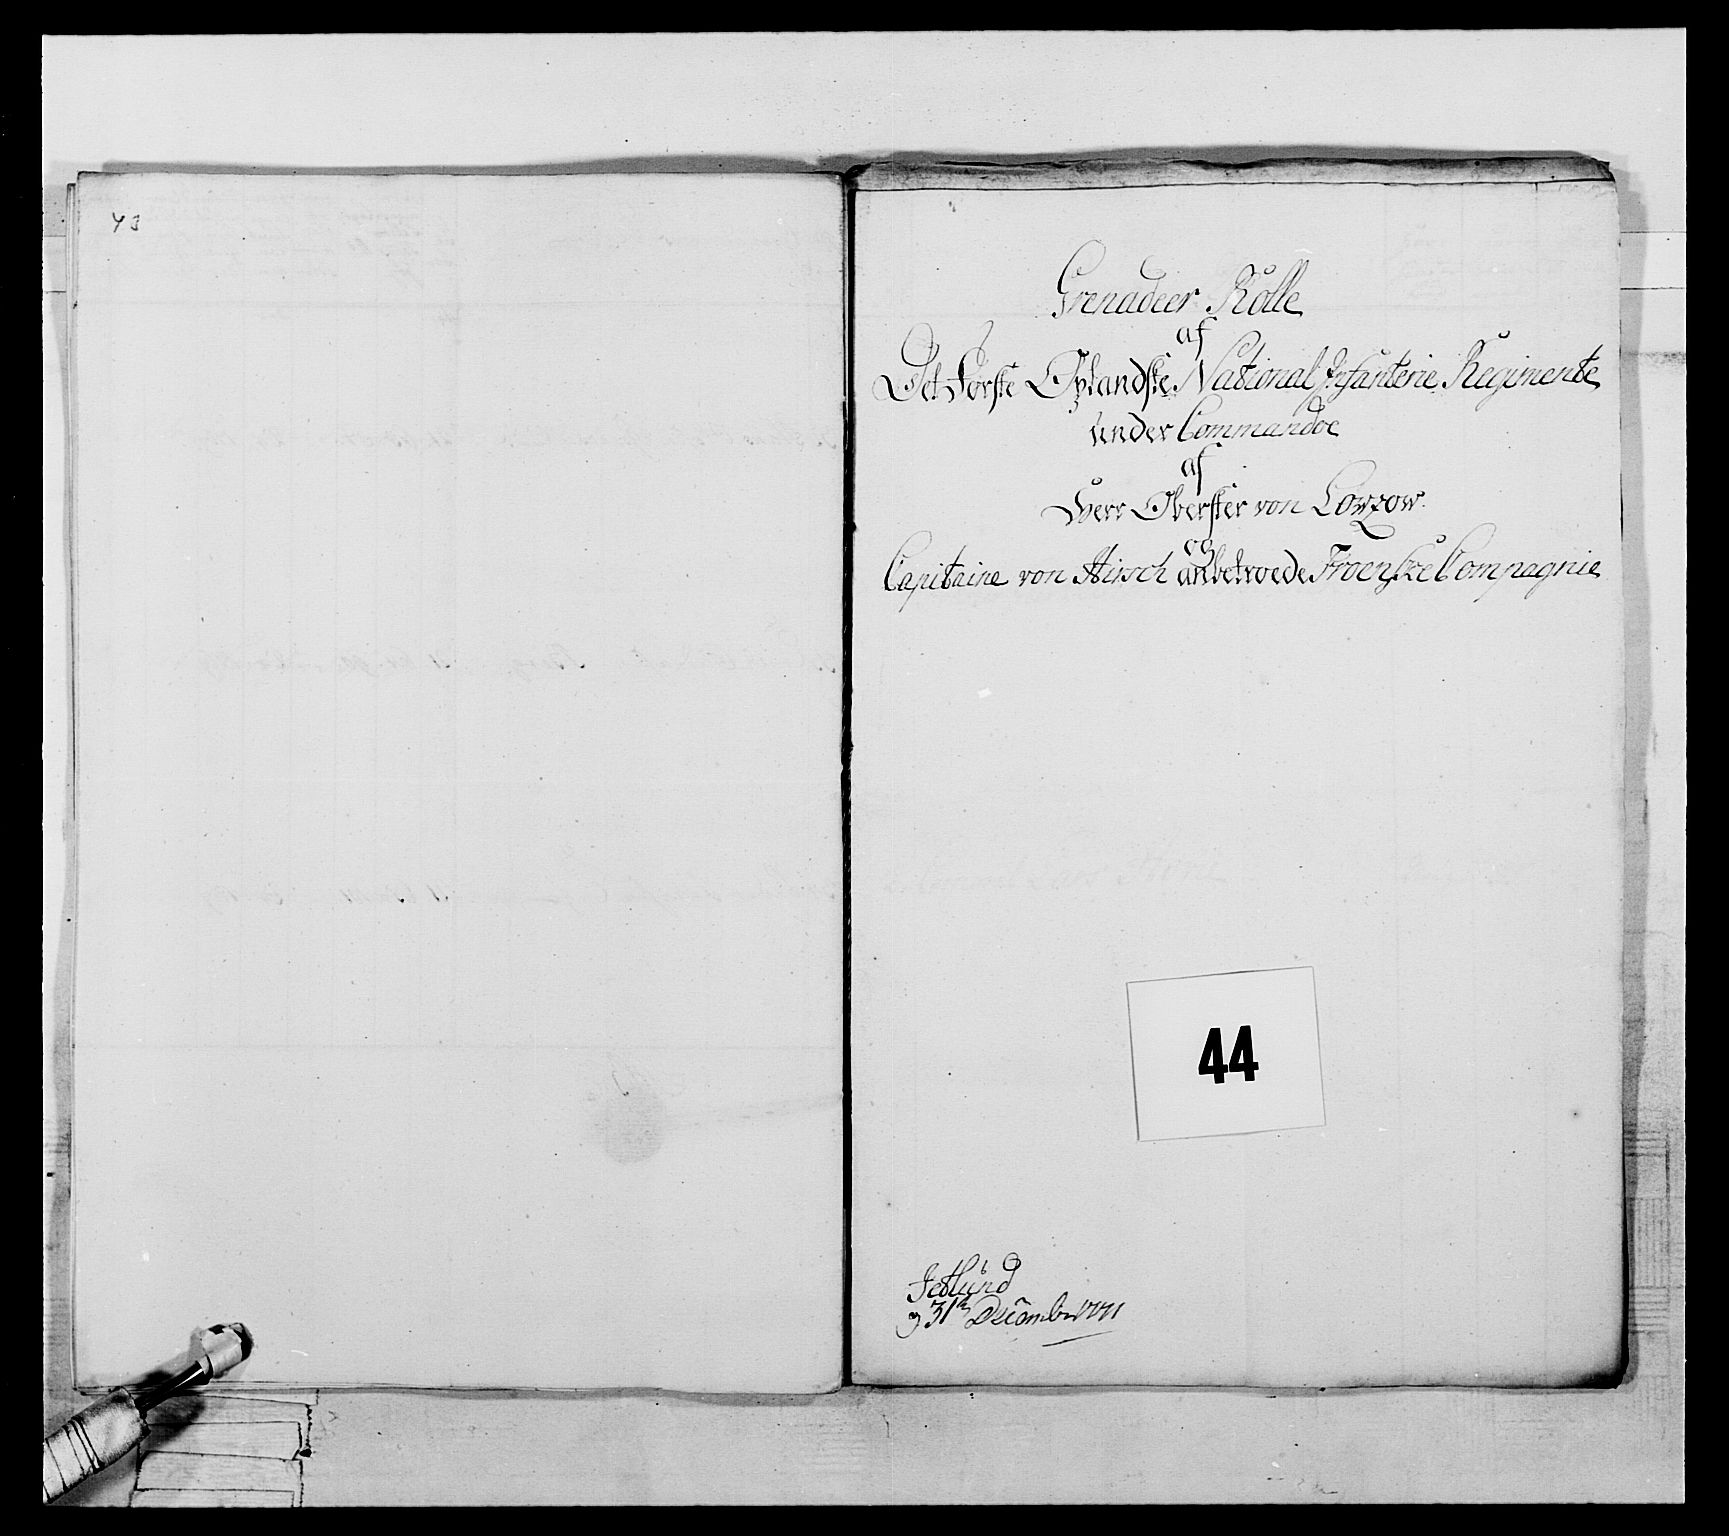 43
Grenadeer Rolle
af
Det Første Oplandske National Infanterie Regimente
under Commandoe
af
Herr Oberster von Lowzow.
og
Capitaine von Hirsch anbetroede Froenske Compagnie
44
Jetlund
31 Decembr 1771